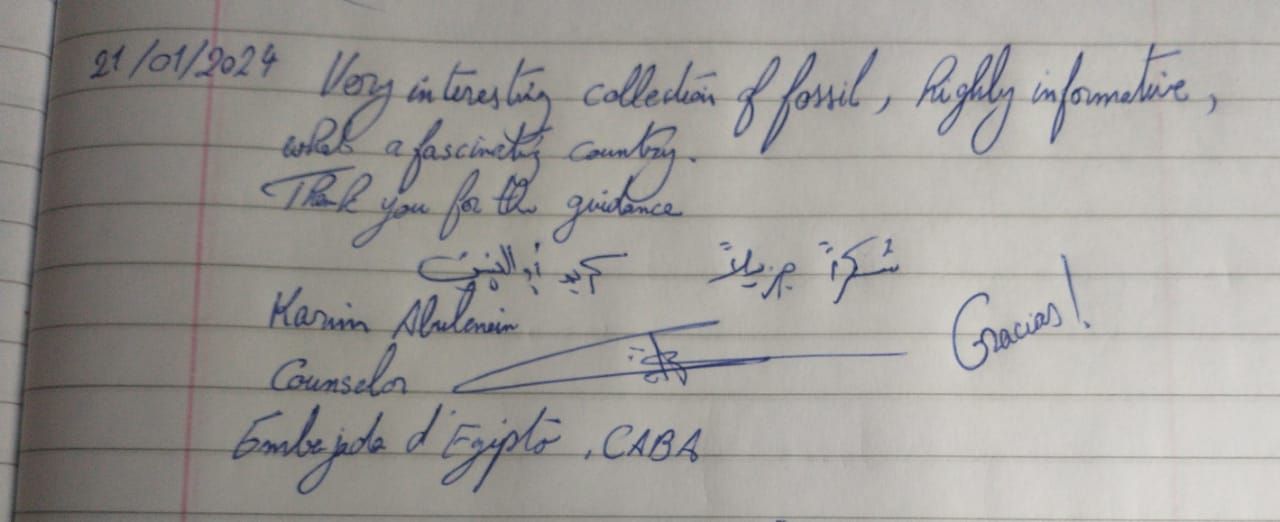 21/01/2024 Very interesting collection of fossil, highly informative,
what a fascinating country.
Thank you for the guidance
شكراً جزيلاً كريم أبو العنين
Karim Abulenein
Gracias!
Counselor
Embajada d'Egipto, CABA